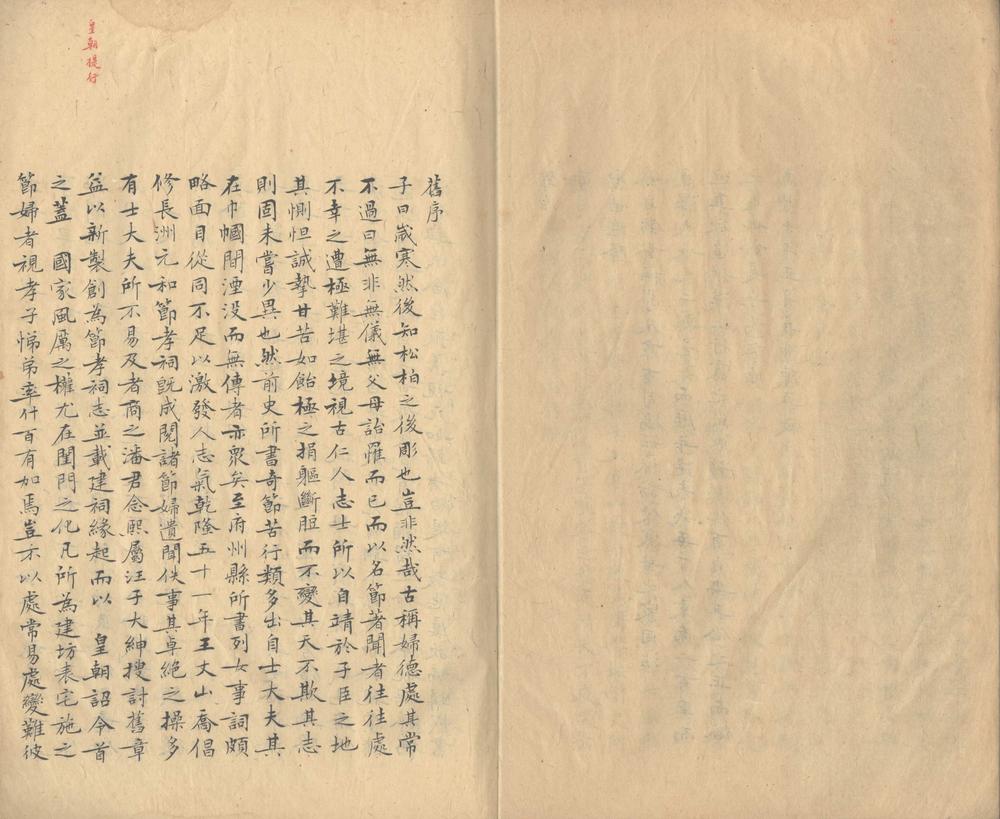 皇朝提行
舊序
子曰歲寒然後知松柏之後彫也豈非然哉古稱婦德處其常
不過曰無非無儀無父母詒罹而已而以名節著聞者往往處
不幸之遭極難堪之境視古仁人志士所以自靖於子臣之地
其惻怛誠摯甘苦如飴極之捐軀斷脰而不變其天不欺其志
則固未嘗少異也然前史所書奇節苦行類多出自士大夫其
在巾幗間湮没而無傳者亦眾矣至府州縣所書列女事詞頗
略面目從同不足以激發人志氣乾隆五十一年王丈山喬倡
修長洲元和節孝祠既成閱諸節婦遺聞佚事其卓絕之操多
有士大夫所不易及者商之潘君念熙屬汪子大紳搜討舊章
益以新製創為節孝祠志並載建祠緣起而以 皇朝詔令首
之蓋 國家風厲之權尤在閨門之化凡所為建坊表宅施之
節婦者視孝子悌弟率什百有加焉豈不以處常易處變難彼